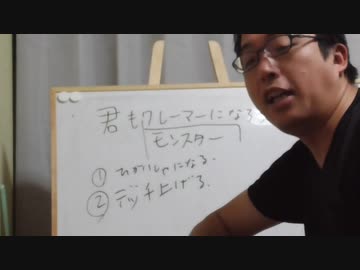 君もクレーマーになる
モンスター
① ひがいしゃになる.
② デッチ上げる.